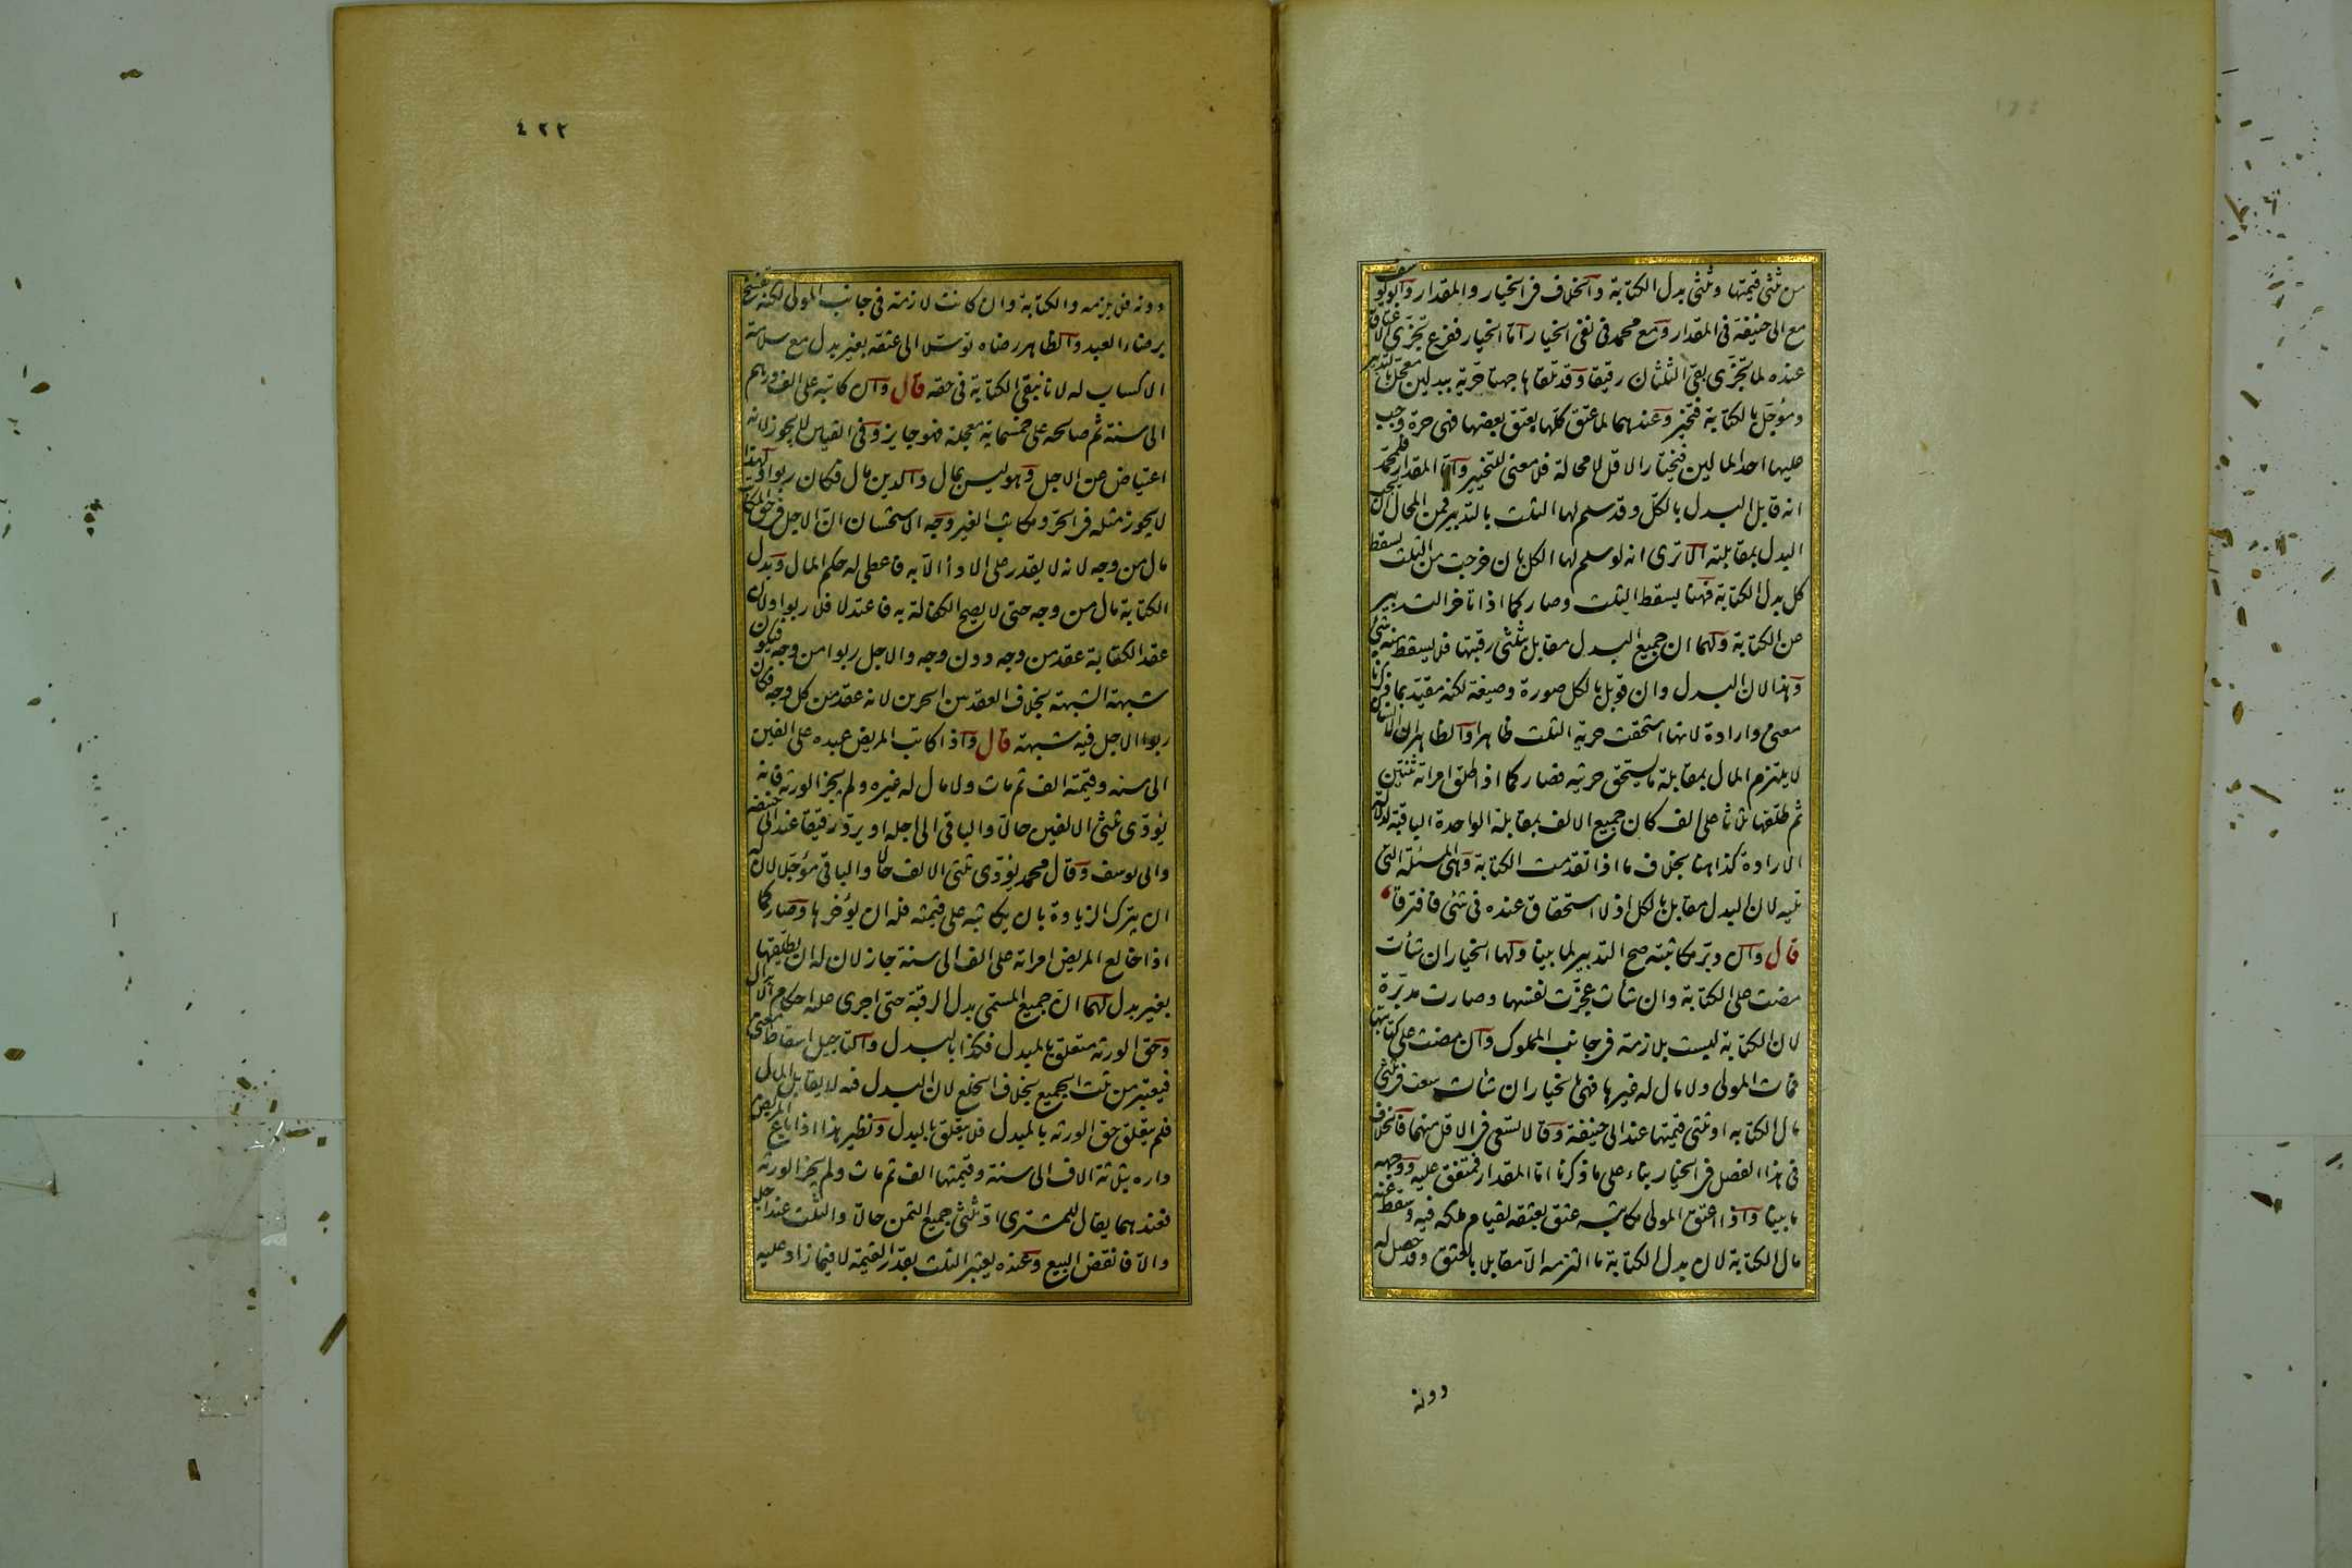 من ثلثي قيمتها وثلثي بدل الكتابة والخلاف في الخيار والمقدار وابو يوسف
مع ابي حنيفة في المقدار ومع محمد في نفي الخيار اما الخيار ففرع تجزي الاعتاق
عنده لما تجزى بقي الثلثان رقيقا وقد تلقاها جهتا حرية ببدلين معجل بالتدبير
ومؤجل بالكتابة فتخير وعندهما لما عتق كلها بعتق بعضها فهي حرة وجب
عليها احد المالين فيختار الاقل لا محالة فلا معنى للتخيير واما المقدار فلمحمد
انه قابل البدل بالكل وقد سلم لها الثلث بالتدبير فمن المحال ان يجب
البدل بمقابلته الا ترى انه لو سلم لها الكل بان خرجت من الثلث يسقط
كل بدل الكتابة فهنا يسقط الثلث وصار كما اذا تاخر التدبير
عن الكتابة ولهما ان جميع البدل مقابل بثلثي رقبتها فلا يسقط منه شئ
وهذا لان البدل وان قوبل بالكل صورة وصيغة لكنه مقيد بما ذكرنا
معنى وارادة لانها استحقت حرية الثلث ظاهرا والظاهر ان الانسان
لا يلتزم المال بمقابلة ما يستحق حريته فصار كما اذا طلق امراته ثنتين
ثم طلقها ثلاثا على الف كان جميع الالف بمقابلة الواحدة الباقية لدلالة
الارادة كذا هنا بخلاف ما اذا تقدمت الكتابة وهي المسئلة التي
تليه لان البدل مقابل بالكل اذ لا استحقاق عنده في شئ فافترقا
قال وان دبر مكاتبته صح التدبير لما بينا ولها الخيار ان شأت
مضت على الكتابة وان شأت عجزت نفسها وصارت مدبرة
لان الكتابة ليست بلازمة في جانب المملوك وان مضت على كتابتها
فمات المولى ولا مال له غيرها فهي بالخيار ان شأت سعت في ثلثي
مال الكتابه او ثلثي قيمتها عند ابي حنيفة وقالا تسعى في الاقل منهما فالخلاف
في هذا الفصل في الخيار بناء على ما ذكرنا اما المقدار فمتفق عليه ووجهه
ما بينا واذا اعتق المولى مكاتبه عتق بعتقه لقيام ملكه فيه وسقط عنه
مال الكتابة لان بدل الكتابة ما التزمه الا مقابلا بالعتق وقد حصل له
دونه
٤٢٢
دونه فلا يلزمه والكتابة وان كانت لازمة في جانب المولى لكنه تفسخ
برضاء العبد والظاهر رضاه توسلا الى عتقه بغير بدل مع سلامة
الاكساب له لانا نبقي الكتابة في حقه قال وان كاتبه على الف درهم
الى سنة ثم صالحه على خمسماية معجلة فهو جايز وفي القياس لا يجوز لانه
اعتياض عن الاجل وهو ليس بمال والدين مال فكان ربوا ولهذا
لا يجوز مثله في الحر ومكاتب الغير وجه الاستحسان ان الاجل في حق المكاتب
مال من وجه لانه لا يقدر على الادأ الا به فاعطي له حكم المال وبدل
الكتابة مال من وجه حتى لا يصح الكفالة به فاعتدلا فلا ربوا ولان
عقد الكتابة عقد من وجه دون وجه والاجل ربوا من وجه فيكون
شبهة الشبهة بخلاف العقد من الحرين لانه عقد من كل وجه فكان
ربوا الاجل فيه شبهة قال واذا كاتب المريض عبده على الفين
الى سنه وقيمته الف ثم مات ولا مال له غيره ولم يجز الورثة فانه
يؤدى ثلثي الالفين حالا والباقي الى اجله او يرد رقيقا عند ابي حنيفة
وابي يوسف وقال محمد يؤدى ثلثي الالف حالا والباقي مؤجلا لان له
ان يترك الزيادة بان يكاتبه على قيمته فله ان يؤخرها وصار كما
اذا خالع المريض امراته على الف الى سنة جاز لان له ان يطلقها
بغير بدل لهما ان جميع المسمى بدل الرقبة حتى اجرى عليه احكام الابدال
وحق الورثة متعلق بالمبدل فكذا بالبدل والتاجيل اسقاط معنى
فيعتبر من ثلث الجميع بخلاف الخلع لان البدل فيه لا يقابل المال
فلم يتعلق حق الورثه بالمبدل فلا يتعلق بالبدل ونظير هذا اذا باع المريض
داره بثلاثة الاف الى سنة وقيمتها الف ثم مات ولم يجز الورثه
فعندهما يقال للمشترى اد ثلثي جميع الثمن حالا والثلث عند اجله
والا فانقض البيع وعنده يعتبر الثلث بقدر القيمة لا فيما زاد عليه